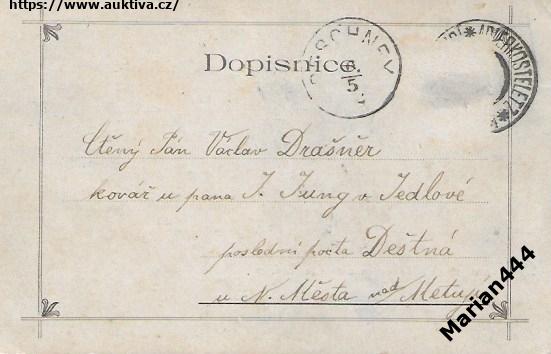 https://www.auktiva.cz/
Dopisnice
Ctěný Pán Václav Drašněr
kovář u pana J. Jung v Jedlové
poslední pošta Deštná
u N. Města nad Metují
Marian444